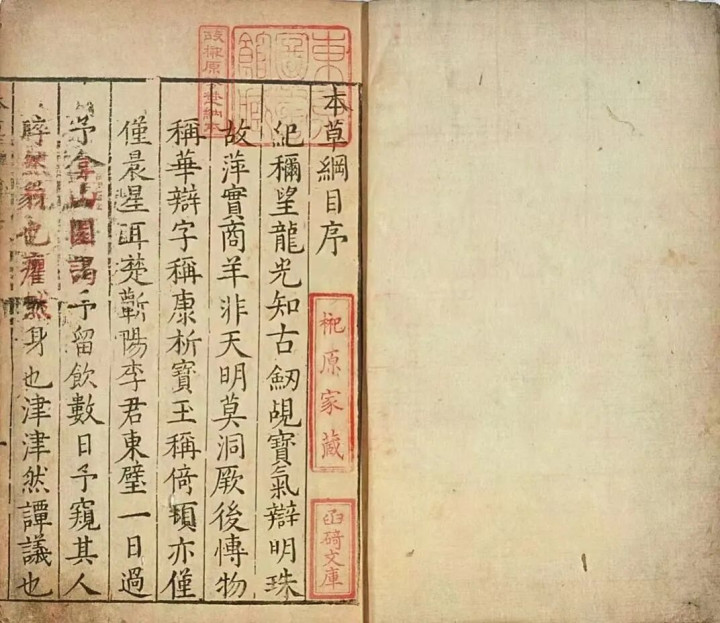 東京圖書館藏
故榊原芳埜納本
本草綱目序
榊原家藏
函碕文庫
紀穪望龍光知古劒覘寶氣辯明珠
故萍實商羊非天明莫洞厥後愽物
稱華辯字稱康析寶玉稱倚頓亦僅
僅晨星耳楚蘄陽李君東璧一日過
予弇山園謁予留飲數日予窺其人
睟然貌也癯然身也津津然譚議也